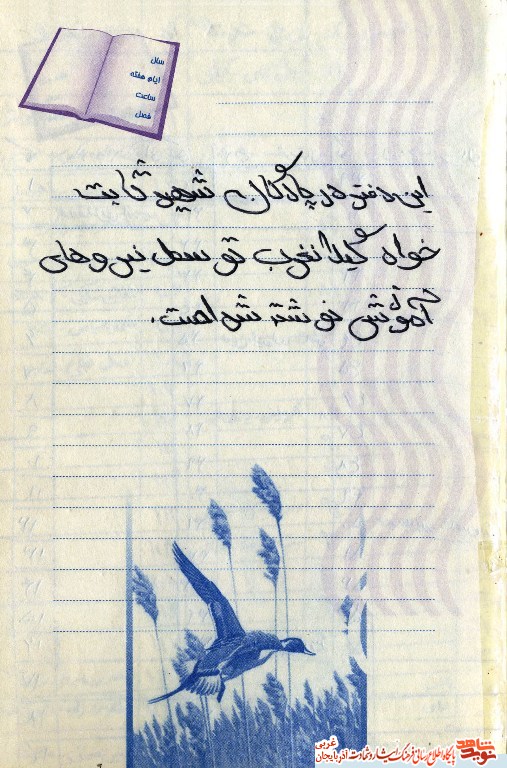 سال
ایام هفته
ساعت
فصل
این دفتر در پادگان شهید ثابت
خواه گیلانغرب توسط نیروهای
آموزش نوشته شده است.
نوید شاهد
پایگاه اطلاع رسانی فرهنگ ایثار و شهادت آذربایجان غربی